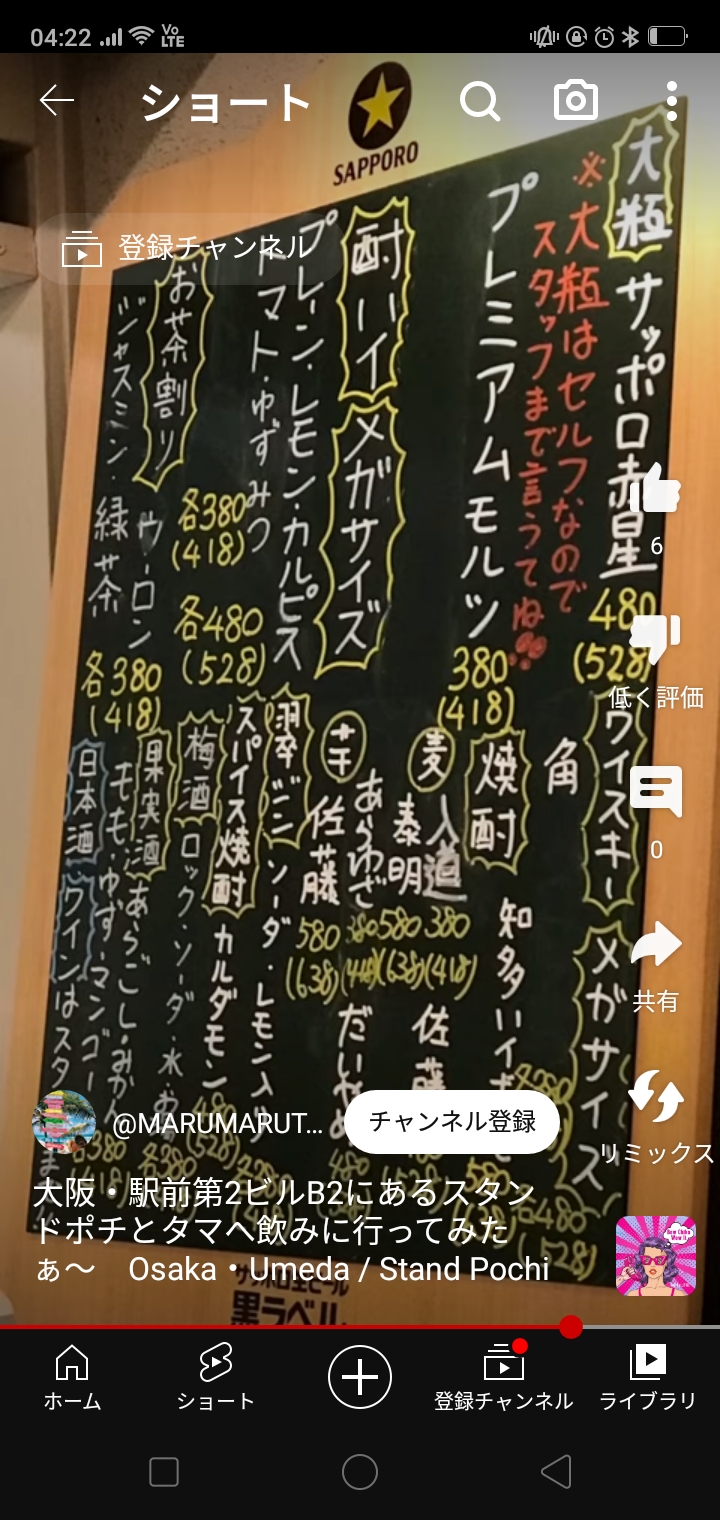 04:22
Vo
LTE
ショート
登録チャンネル
SAPPORO
大瓶
サッポロ赤星
480
(528)
※大瓶はセルフなので
スタッフまで言うてね!!
プレミアムモルツ
380
(418)
酎ハイ
メガサイズ
プレーン・レモン・カルピス
トマト・ゆずみつ
各380
(418)
各480
(528)
お茶割り
ジャスミン・ウーロン
緑茶
各380
(418)
ウイスキー
メガサイズ
角
知多ハイボ
焼酎
麦
入道
380
(418)
泰明
580
(638)
佐藤
芋
あらわざ
380
佐藤
580
(638)
だいやめ
翠ジン
ソーダ・レモン入り
スパイス焼酎
カルダモン
梅酒
ロック・ソーダ・水・お
果実酒
あらごしみかん
もも・ゆず・マンゴー
日本酒
ワインはスタ
6
低く評価
0
共有
リミックス
@MARUMARUT...
チャンネル登録
大阪・駅前第2ビルB2にあるスタン
ドポチとタマへ飲みに行ってみた
ぁ〜 Osaka・Umeda / Stand Pochi
黒ラベル
ホーム
ショート
登録チャンネル
ライブラリ